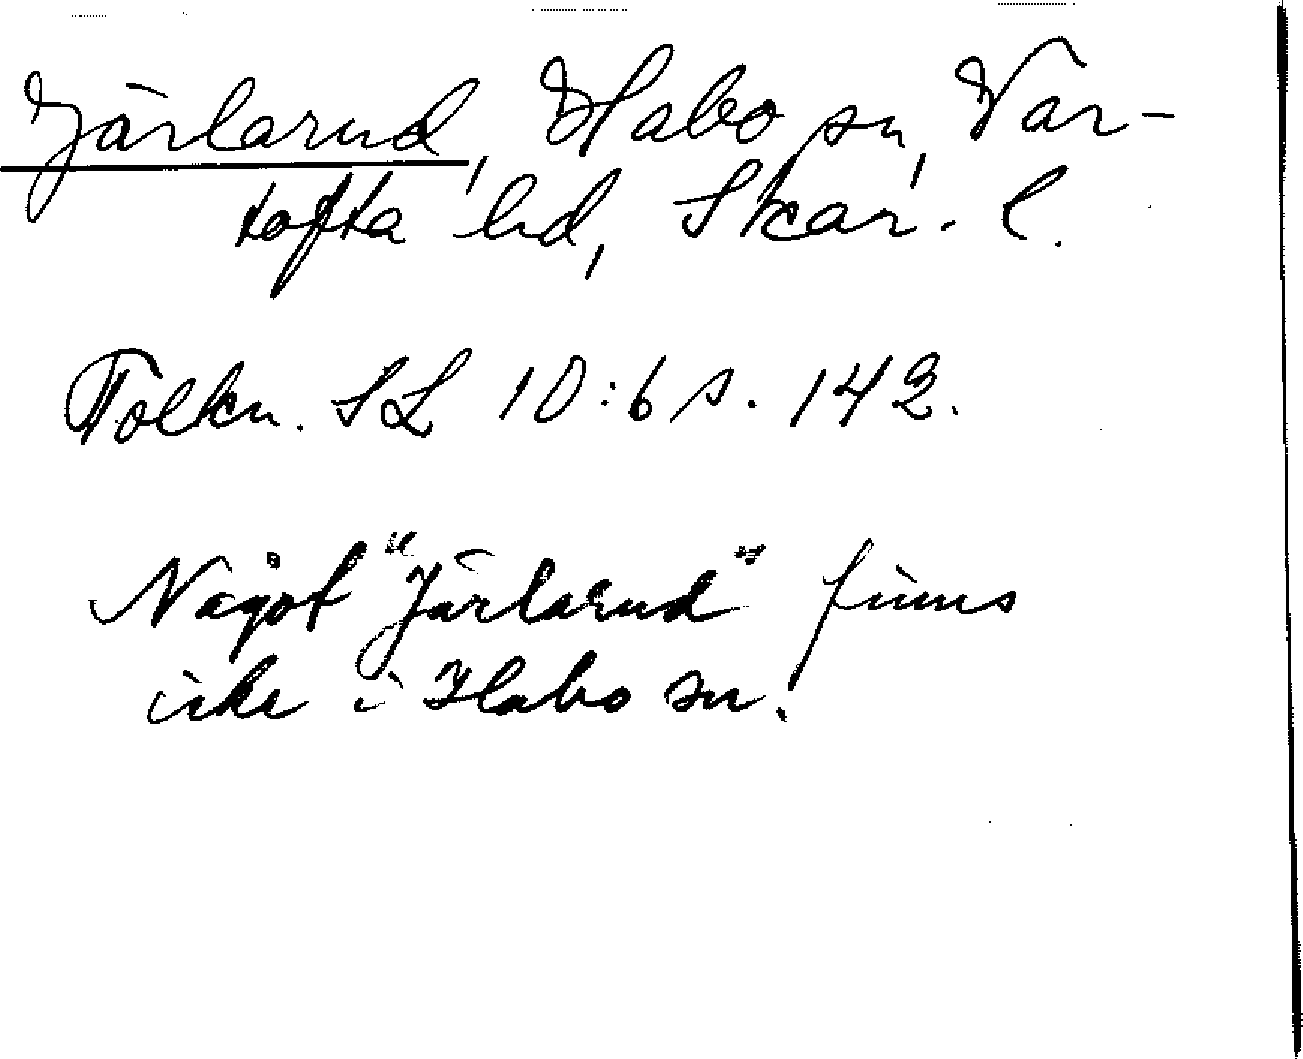 Järlarud, Habo sn, Var-
tofta hd, Skar. l.
Folkn. SL 10:6 s. 142.
Något "Järlarud" finns
icke i Habo sn!